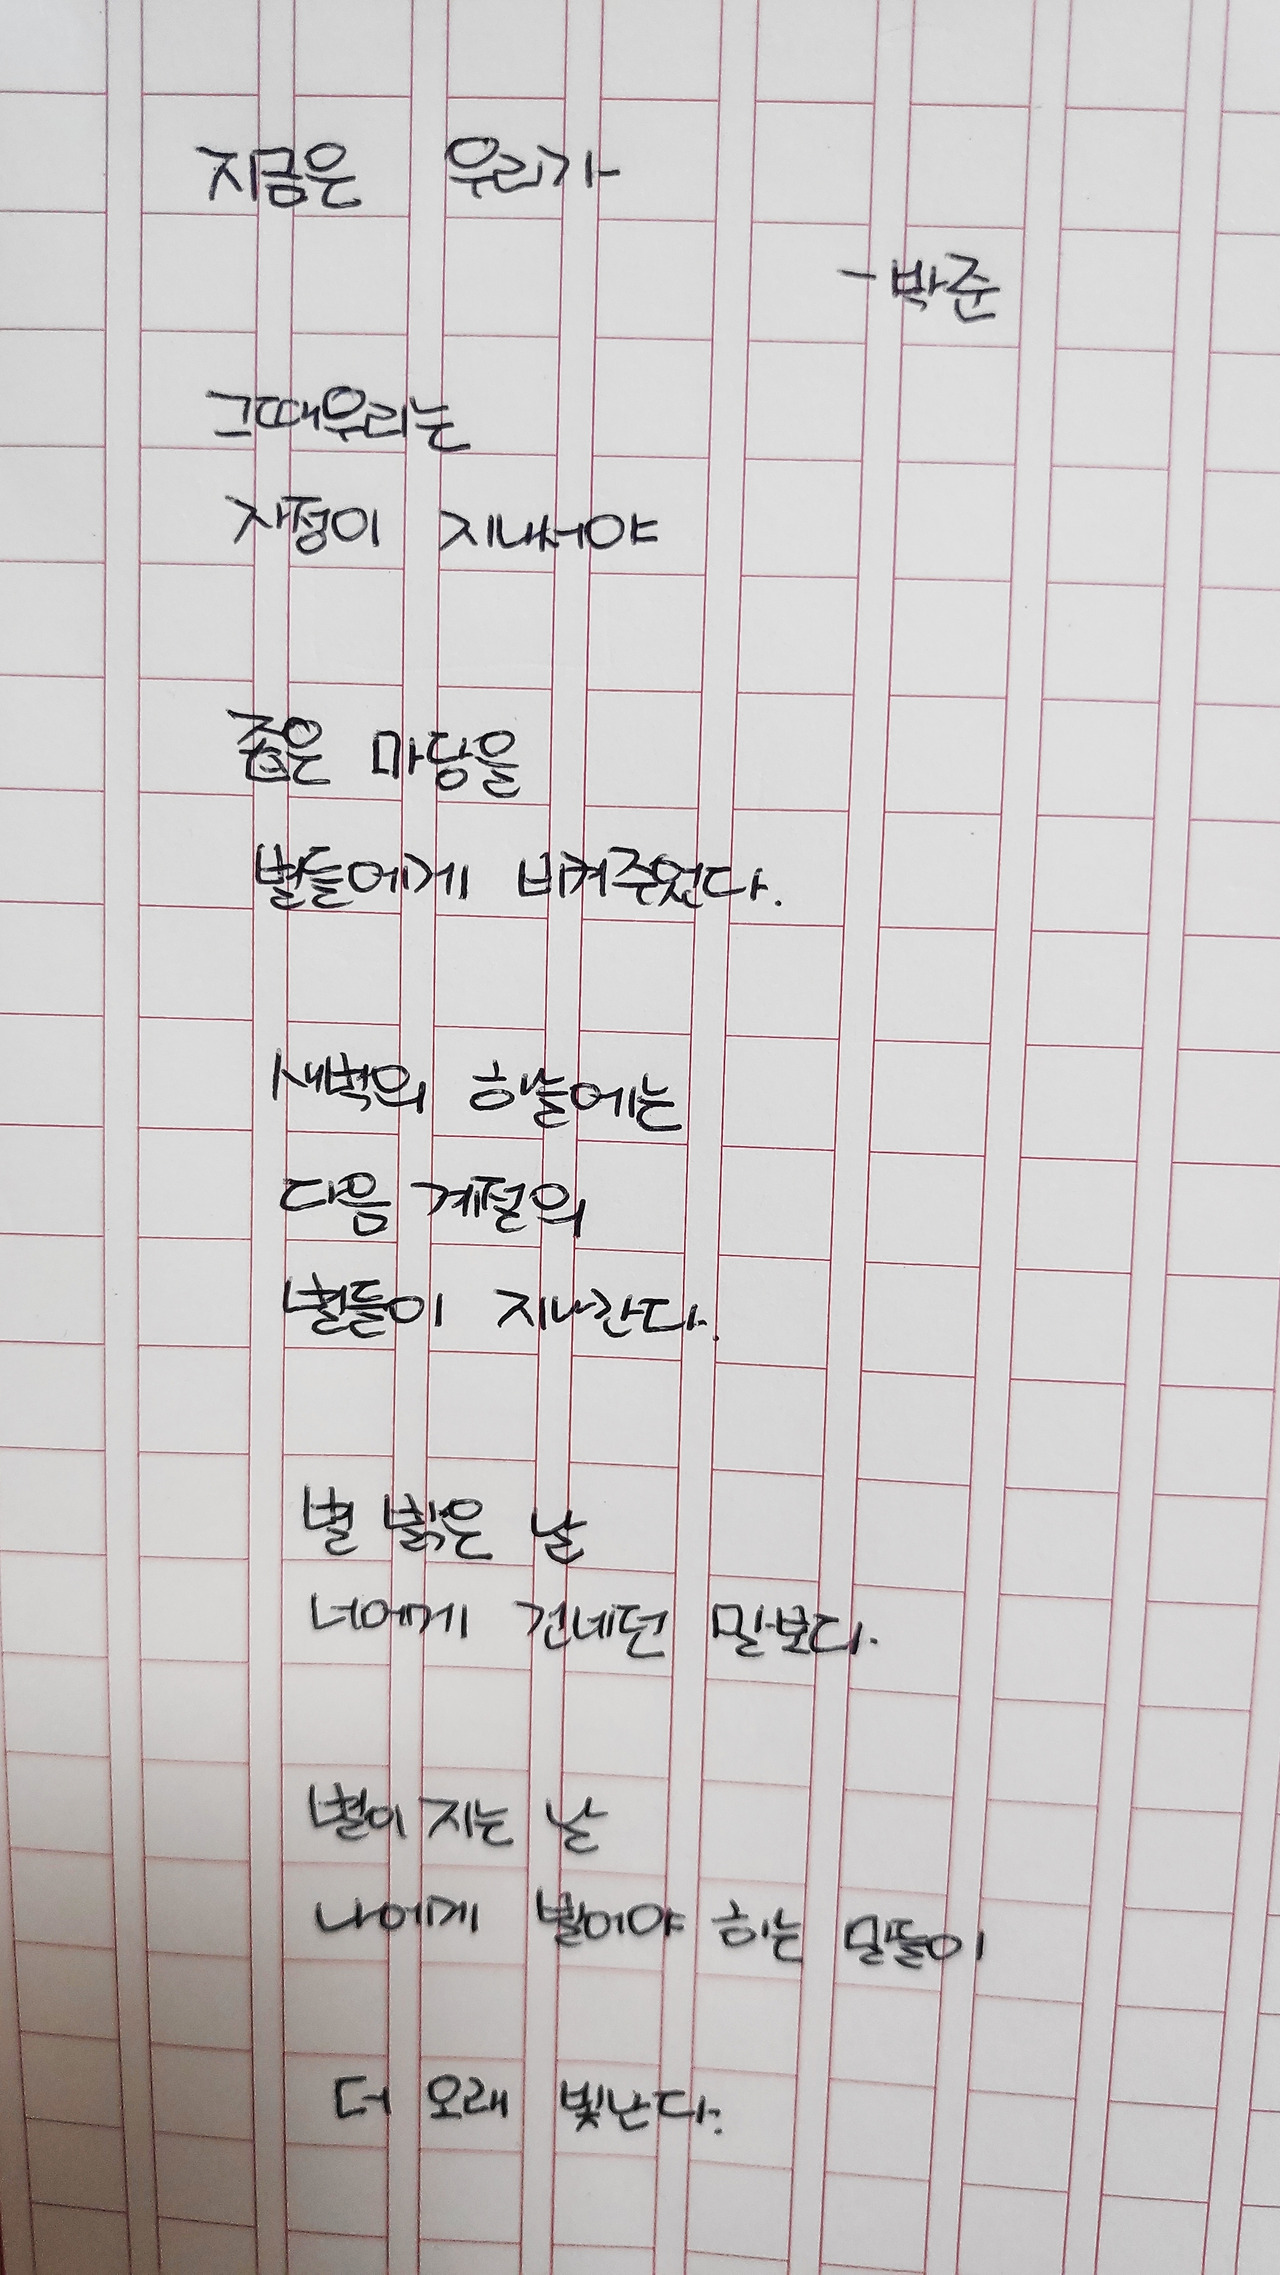 지금은 우리가
- 박준
그때우리는
자정이 지나서야
좁은 마당을
별들에게 비켜주었다.
새벽의 하늘에는
다음 계절의
별들이 지나간다.
별 밝은 날
너에게 건네던 말보다.
별이 지는 날
나에게 빌어야 하는 말들이
더 오래 빛난다.